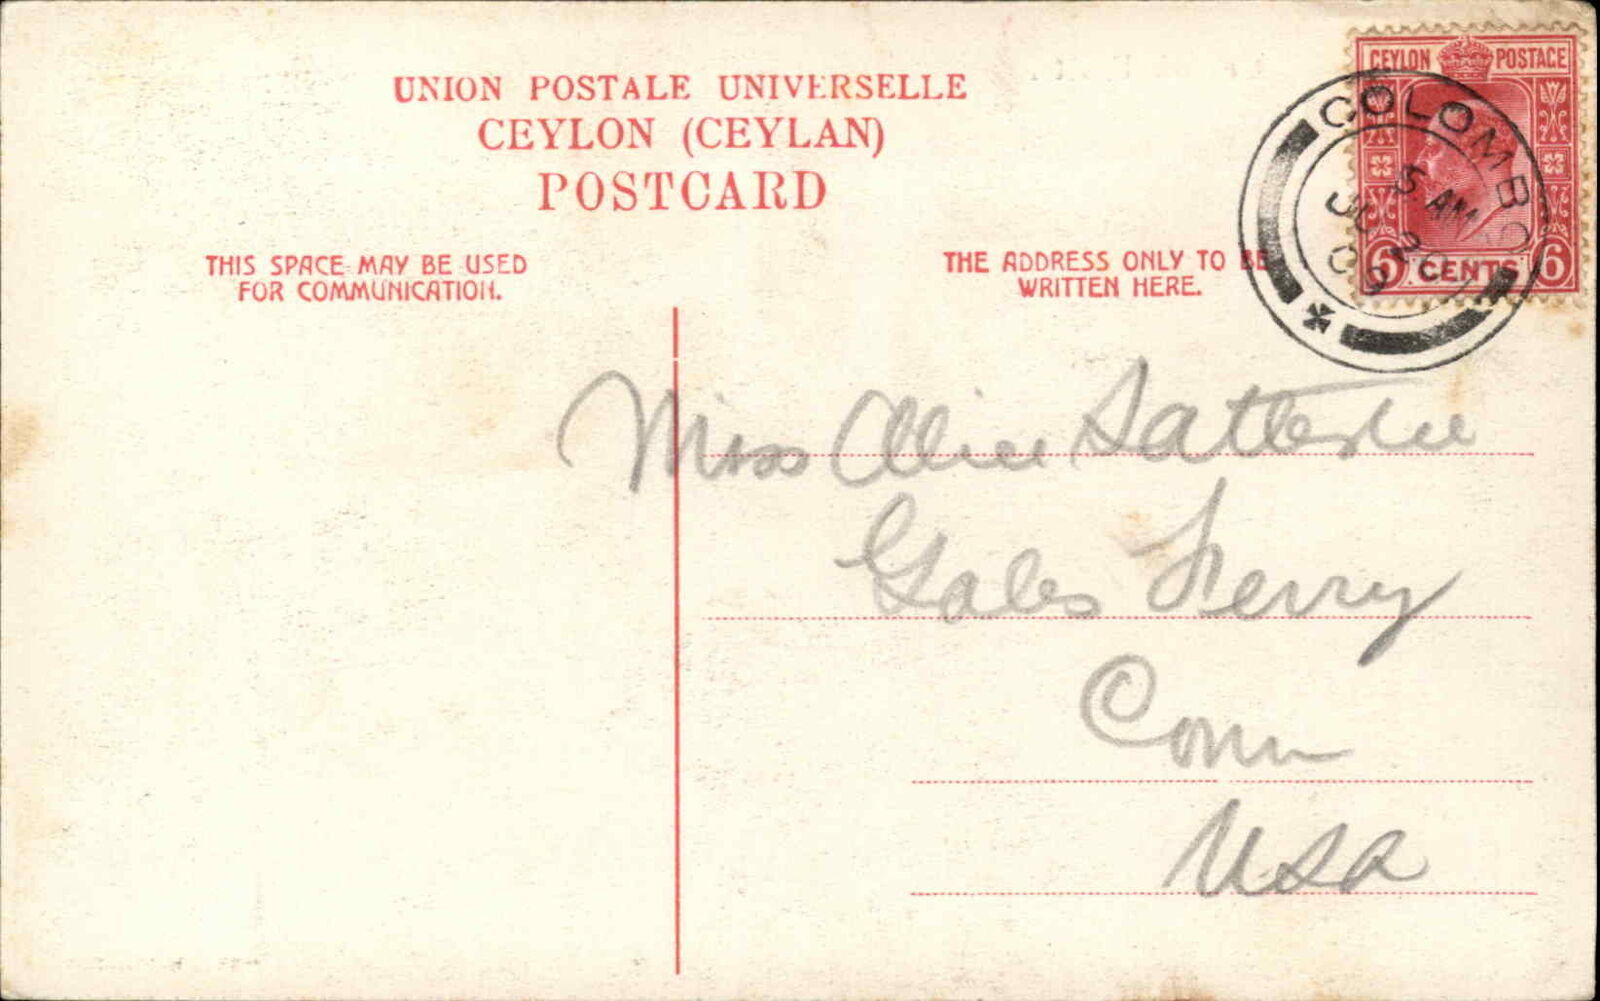 UNION POSTALE UNIVERSELLE
CEYLON (CEYLAN)
POSTCARD
THIS SPACE MAY BE USED
FOR COMMUNICATION.
THE ADDRESS ONLY TO BE
WRITTEN HERE.
CEYLON POSTAGE
6 CENTS 6
COLOMBO
5. AM
JU 20
09
Miss Alice Satterlee
Gales Ferry
Conn
USA